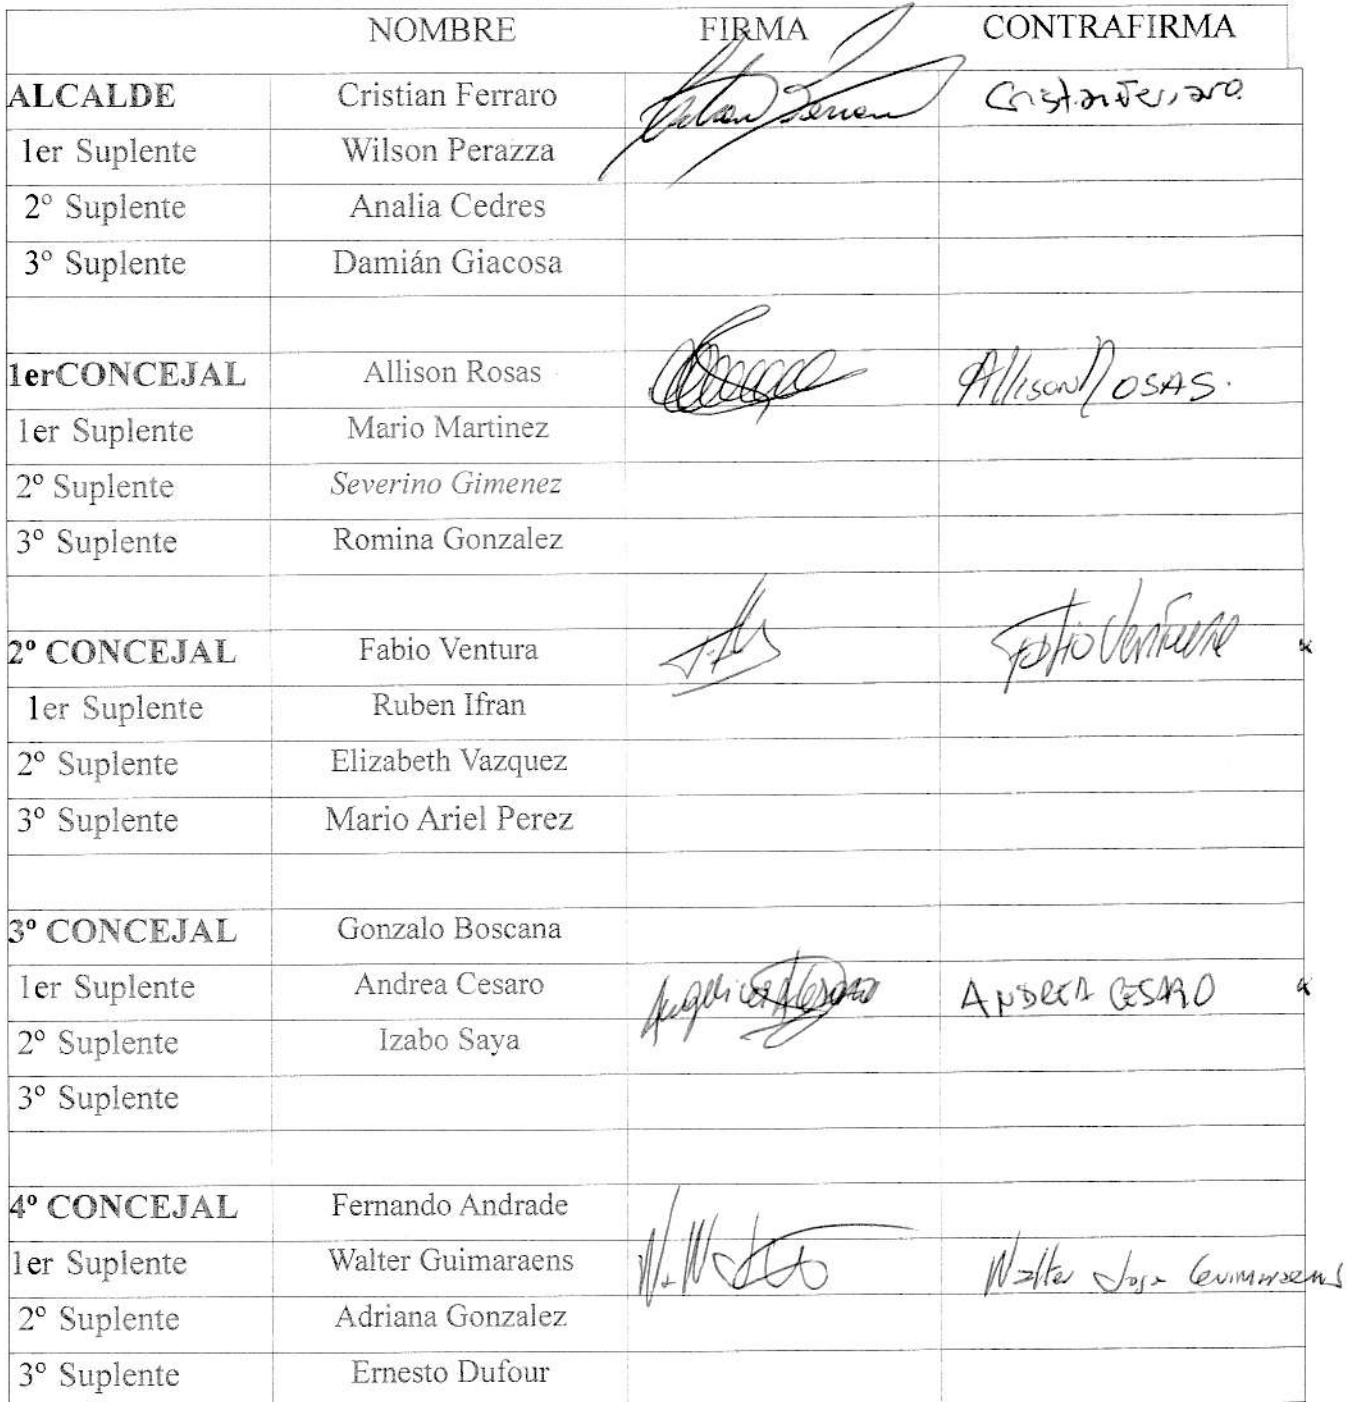 NOMBRE FIRMA CONTRAFIRMA
ALCALDE Cristian Ferraro Cristian Ferraro
1er Suplente Wilson Perazza
2º Suplente Analia Cedres
3º Suplente Damián Giacosa
1erCONCEJAL Allison Rosas Allison Rosas.
1er Suplente Mario Martinez
2º Suplente Severino Gimenez
3º Suplente Romina Gonzalez
2º CONCEJAL Fabio Ventura Fabio Ventura
1er Suplente Ruben Ifran
2º Suplente Elizabeth Vazquez
3º Suplente Mario Ariel Perez
3º CONCEJAL Gonzalo Boscana
1er Suplente Andrea Cesaro ANDREA CESARO
2º Suplente Izabo Saya
3º Suplente
4º CONCEJAL Fernando Andrade
1er Suplente Walter Guimaraens Walter Jose Guimaraens
2º Suplente Adriana Gonzalez
3º Suplente Ernesto Dufour